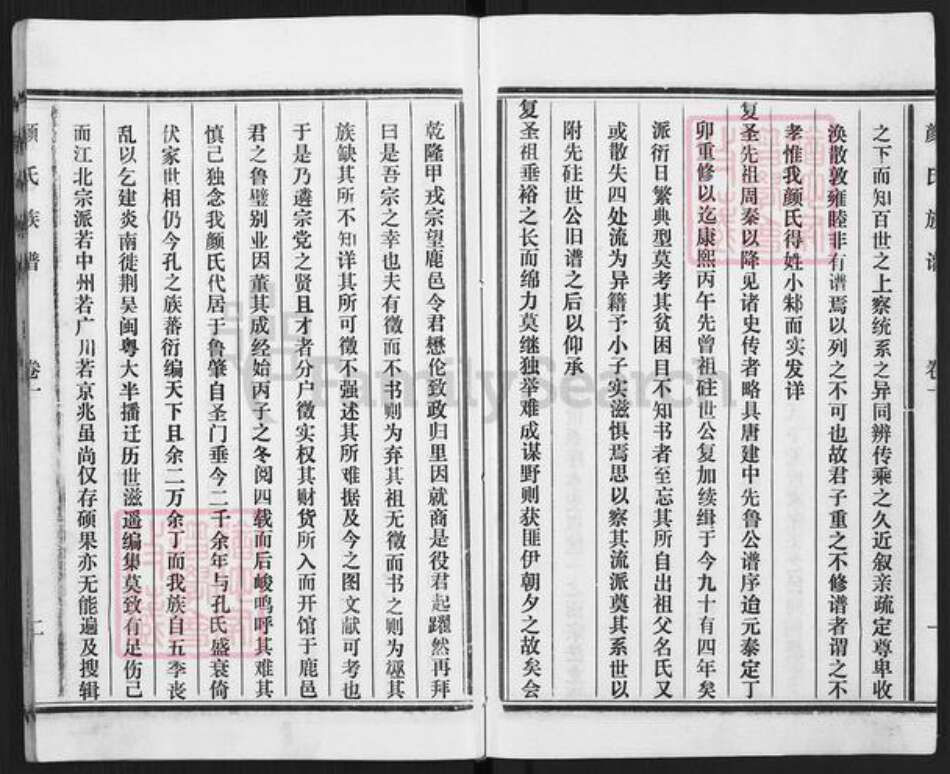 颜氏族谱 卷一 一
之下而知百世之上察统系之异同辨传乘之久近叙亲疏定尊卑收
涣散敦雍睦非有谱焉以列之不可也故君子重之不修谱者谓之不
孝惟我颜氏得姓小邾而实发详
复圣先祖周秦以降见诸史传者略具唐建中先鲁公谱序迨元泰定丁
卯重修以迄康熙丙午先曾祖砫世公复加续缉于今九十有四年矣
派衍日繁典型莫考其贫困目不知书者至忘其所自出祖父名氏又
或散失四处流为异籍予小子实滋惧焉思以察其流派奠其系世以
附先砫世公旧谱之后以仰承
复圣祖垂裕之长而绵力莫继独举难成谋野则获匪伊朝夕之故矣会
乾隆甲戎宗望鹿邑令君懋伦致政归里因就商是役君起躍然再拜
曰是吾宗之幸也夫有徵而不书则为弃其祖无徵而书之则为诬其
族缺其所不知详其所可徵不强述其所难据及今之图文献可考也
于是乃遴宗党之贤且才者分户徵实权其财货所入而开馆于鹿邑
君之鲁璧别业因董其成经始丙子之冬阅四载而后峻鸣呼其难其
慎己独念我颜氏代居于鲁肇自圣门垂今二千余年与孔氏盛衰倚
伏家世相仍今孔之族蕃衍编天下且余二万余丁而我族自五季丧
乱以乞建炎南徙荆吴闽粤大半播迁历世滋遥编集莫致有足伤己
而江北宗派若中州若广川若京兆虽尚仅存硕果亦无能遍及搜辑
颜氏族谱 卷一 二
FamilySearch